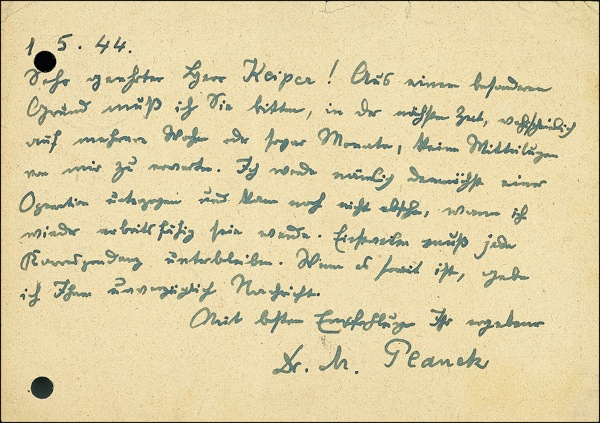 1.5.44.
Sehr geehrter Herr Keiper! Aus einem besonderen
Grund muß ich Sie bitten, in der nächsten Zeit, wahrscheinlich
auf mehrere Wochen oder sogar Monate, keine Mitteilungen
von mir zu erwarten. Ich werde nämlich demnächst einer
Operation unterzogen und kann noch nicht absehen, wann ich
wieder arbeitsfähig sein werde. Einstweilen muß jede
Korrespondenz unterbleiben. Wenn es soweit ist, gebe
ich Ihnen unverzüglich Nachricht.
Mit besten Empfehlungen Ihr ergebener
Dr. M. Planck